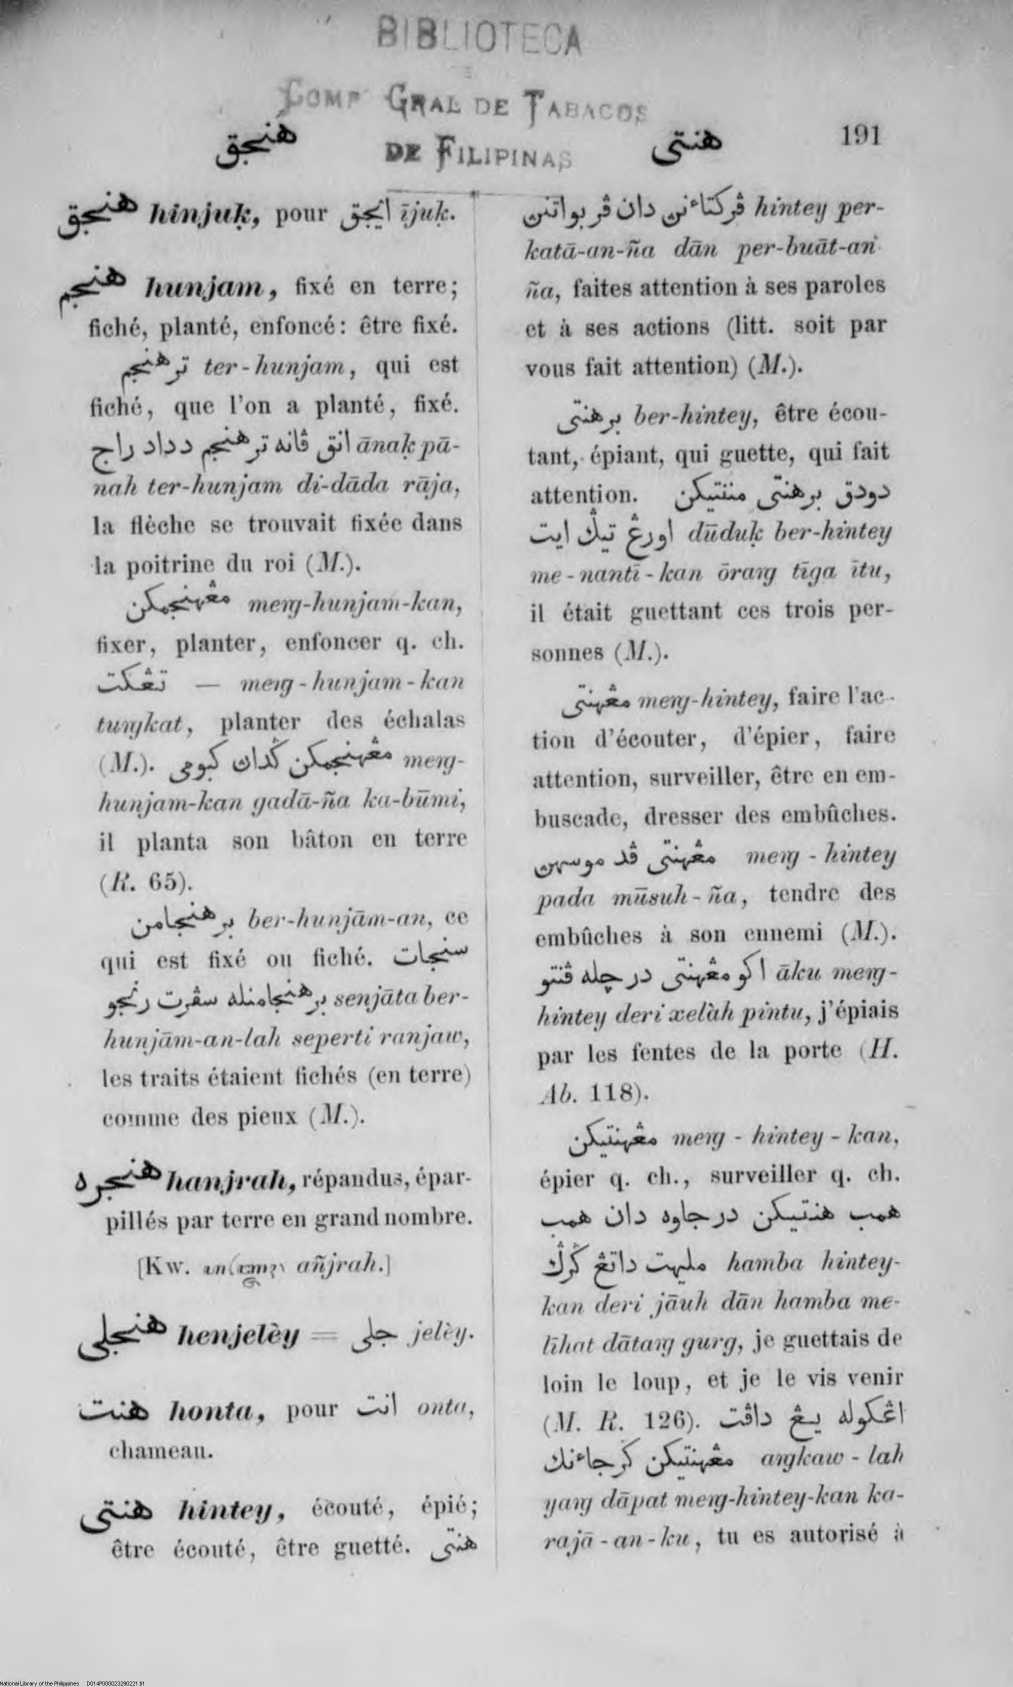 BIBLIOTECA
COMP GRAL DE TABACOS
DE FILIPINAS
هنجق
هنتى
191
هنجق hinjuḳ, pour ايجق ījuḳ.
هنجم hunjam, fixé en terre;
fiché, planté, enfoncé: être fixé.
ترهنجم ter-hunjam, qui est
fiché, que l'on a planté, fixé.
انق ڤانه ترهنجم دداد راج ānaḳ pā-
nah ter-hunjam di-dāda rāja,
la flèche se trouvait fixée dans
la poitrine du roi (M.).
مڠهنجمكن meŋ-hunjam-kan,
fixer, planter, enfoncer q. ch.
تڠكت — meŋ-hunjam-kan
tuŋkat, planter des échalas
(M.). مڠهنجمكن ݢدان كبومى meŋ-
hunjam-kan gadā-ña ka-būmi,
il planta son bâton en terre
(R. 65).
برهنجامن ber-hunjām-an, ce
qui est fixé ou fiché. سنجات
برهنجامنله سڤرت رنجو senjāta ber-
hunjām-an-lah seperti ranjaw,
les traits étaient fichés (en terre)
comme des pieux (M.).
هنجره hanjrah, répandus, épar-
pillés par terre en grand nombre.
[Kw. añjrah.]
هنجلى henjelèy = جلى jelèy.
هنت honta, pour انت onta,
chameau.
هنتى hintey, écouté, épié;
être écouté, être guetté. هنتى
ڤركتاءن دان ڤربواتنن hintey per-
katā-an-ña dān per-buāt-an
ña, faites attention à ses paroles
et à ses actions (litt. soit par
vous fait attention) (M.).
برهنتى ber-hintey, être écou-
tant, épiant, qui guette, qui fait
attention. دودق برهنتى مننتيكن
اورڠ تيݢ ايت dūduḳ ber-hintey
me-nantī-kan ōraŋ tīga ītu,
il était guettant ces trois per-
sonnes (M.).
مڠهنتى meŋ-hintey, faire l'ac-
tion d'écouter, d'épier, faire
attention, surveiller, être en em-
buscade, dresser des embûches.
مڠهنتى ڤد موسهن meŋ-hintey
pada mūsuh-ña, tendre des
embûches à son ennemi (M.).
اكو مڠهنتى درچله ڤنتو āku meŋ-
hintey deri xelàh pintu, j'épiais
par les fentes de la porte (H.
Ab. 118).
مڠهنتيكن meŋ-hintey-kan,
épier q. ch., surveiller q. ch.
همب هنتيكن درجاوه دان همب
مليهت داتڠ ݢرݢ hamba hintey-
kan deri jāuh dān hamba me-
līhat dātaŋ gurg, je guettais de
loin le loup, et je le vis venir
(M. R. 126). اڠكوله يڠ داڤت
مڠهنتيكن كرجاءنك aŋkaw-lah
yaŋ dāpat meŋ-hintey-kan ka-
rajā-an-ku, tu es autorisé à
National Library of the Philippines